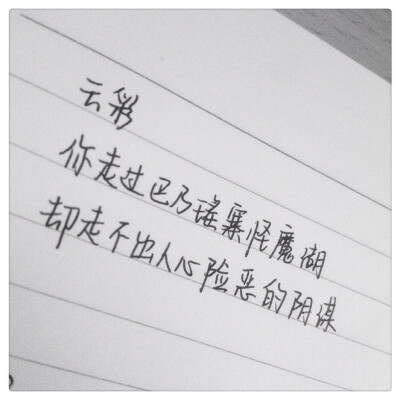 云彩
你走过巴乃瑶寨怪魔湖
却走不出人心险恶的阴谋